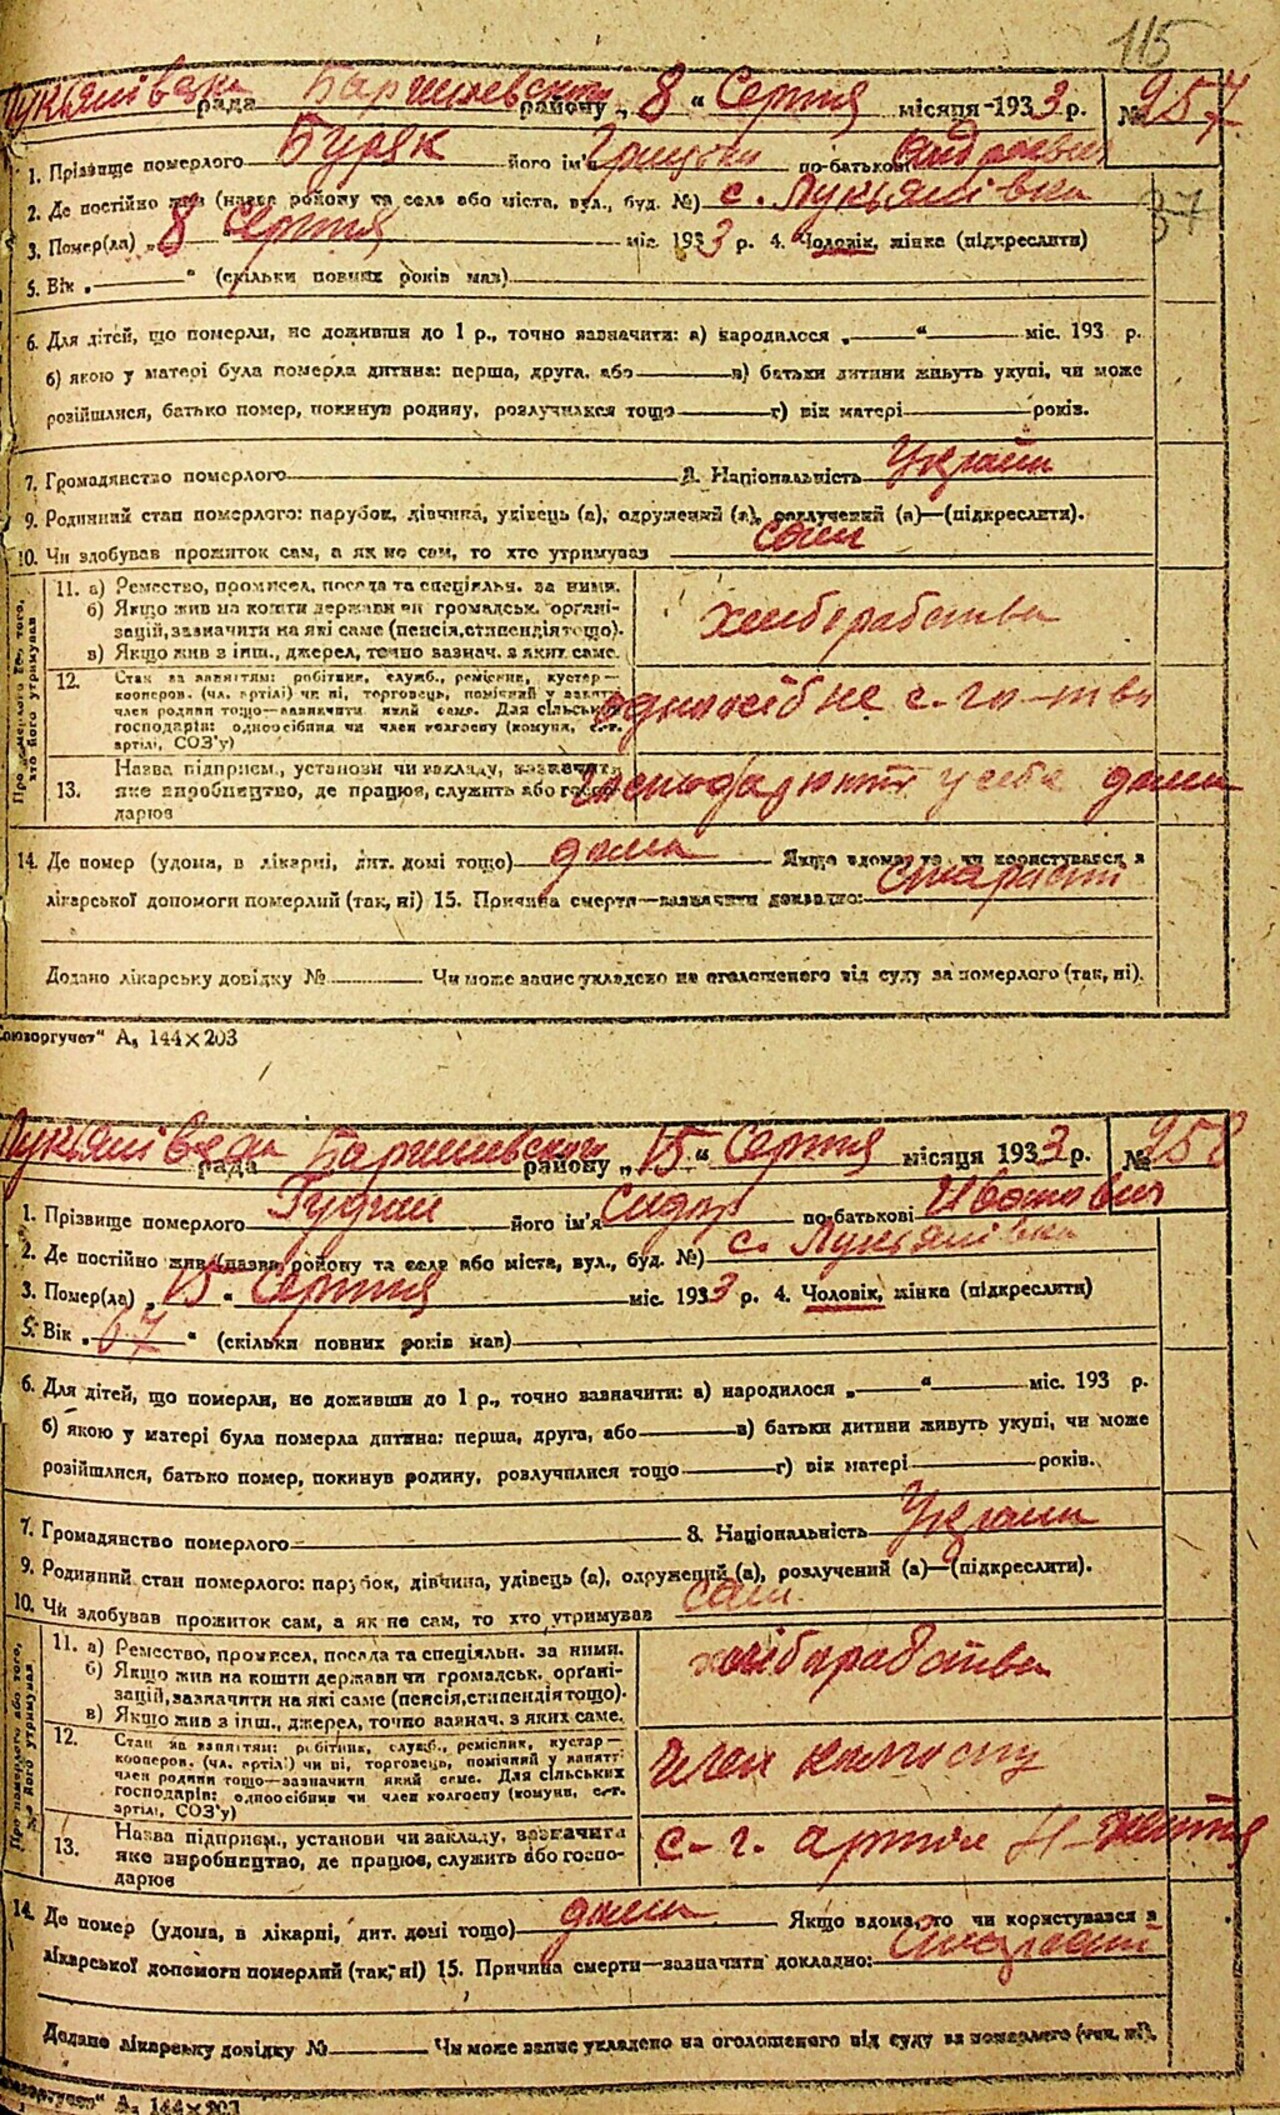 115
Лукьянівська рада Баришевського району „ 8 “ Серпня місяця 1933 р. № 257
1. Прізвище померлого Буряк його ім'я по-батькові
2. Де постійно жив (назва району та села або міста, вул., буд. №) с. Лукьянівка
37
3. Помер(ла) „ 8 “ Серпня міс. 1933 р. 4. Чоловік, жінка (підкреслити)
5. Вік „ “ (скільки повних років мав)
6. Для дітей, що померли, не доживши до 1 р., точно зазначити: а) народилося „ “ міс. 193 р.
б) якою у матері була померла дитина: перша, друга, або в) батьки дитини живуть укупі, чи може
розійшлися, батько помер, покинув родину, розлучилися тощо г) вік матері років.
7. Громадянство померлого 8. Національність Україн
9. Родинний стан померлого: парубок, дівчина, удівець (а), одружений (а), розлучений (а)—(підкреслити).
10. Чи здобував прожиток сам, а як не сам, то хто утримував сам
Про померлого або того, хто його утримував
11. а) Ремество, промисел, посада та спеціяльн. за ними.
б) Якщо жив на кошти держави чи громадськ. органі-
зацій, зазначити на які саме (пенсія, стипендія тощо).
в) Якщо жив з інш., джерел, точно зазнач. з яких саме.
хлеборабства
12. Стан за заняттям: робітник, служб., ремісник, кустар—
кооперов. (чл. артілі) чи ні, торговець, помічний у занятт.
член родини тощо—зазначити який саме. Для сільських
господарів: одноосібник чи член колгоспу (комуни, с.-г.
артілі, СОЗ'у)
одноосібне с.-го-тво
13. Назва підприєм., установи чи закладу, зазначити
яке виробництво, де працює, служить або госпо-
дарює
у себе дома
14. Де помер (удома, в лікарні, дит. домі тощо) дома Якщо вдома, то чи користувався з
лікарської допомоги померлий (так, ні) 15. Причина смерти—зазначити докладно: старасти
Додано лікарську довідку № Чи може запис укладено на оголошеного від суду за померлого (так, ні).
Союзоргучет“ А, 144×203
Лукьянівська рада Баришевського району „ 15 “ Серпня місяця 1933 р. № 258
1. Прізвище померлого його ім'я Сидор по-батькові Іванович
2. Де постійно жив (назва району та села або міста, вул., буд. №) с. Лукьянівка
3. Помер(ла) „ 15 “ Серпня міс. 1933 р. 4. Чоловік, жінка (підкреслити)
5. Вік „ 67 “ (скільки повних років мав)
6. Для дітей, що померли, не доживши до 1 р., точно зазначити: а) народилося „ “ міс. 193 р.
б) якою у матері була померла дитина: перша, друга, або в) батьки дитини живуть укупі, чи може
розійшлися, батько помер, покинув родину, розлучилися тощо г) вік матері років.
7. Громадянство померлого 8. Національність Україн
9. Родинний стан померлого: парубок, дівчина, удівець (а), одружений (а), розлучений (а)—(підкреслити).
10. Чи здобував прожиток сам, а як не сам, то хто утримував сам
Про померлого або того, хто його утримував
11. а) Ремество, промисел, посада та спеціяльн. за ними.
б) Якщо жив на кошти держави чи громадськ. органі-
зацій, зазначити на які саме (пенсія, стипендія тощо).
в) Якщо жив з інш., джерел, точно зазнач. з яких саме.
хлібарабства
12. Стан за заняттям: робітник, служб., ремісник, кустар—
кооперов. (чл. артілі) чи ні, торговець, помічний у занятт.
член родини тощо—зазначити який саме. Для сільських
господарів: одноосібник чи член колгоспу (комуни, с.-г.
артілі, СОЗ'у)
член колгоспу
13. Назва підприєм., установи чи закладу, зазначити
яке виробництво, де працює, служить або госпо-
дарює
с-г. артіли Н-життя
14. Де помер (удома, в лікарні, дит. домі тощо) дома Якщо вдома, то чи користувався з
лікарської допомоги померлий (так, ні) 15. Причина смерти—зазначити докладно: старасти
Додано лікарську довідку № Чи може запис укладено на оголошеного від суду за померлого (так, ні).
Союзоргучет“ А, 144×203